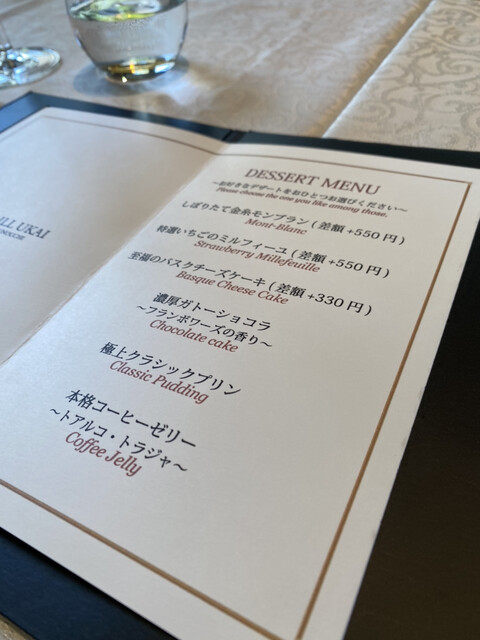 LL UKAI
DESSERT MENU
～お好きなデザートをおひとつお選びください～
Please choose the one you like among those.
しぼりたて金糸モンブラン ( 差額 +550 円 )
Mont-Blanc
特選いちごのミルフィーユ ( 差額 +550 円 )
Strawberry Millefeuille
至福のバスクチーズケーキ ( 差額 +330 円 )
Basque Cheese Cake
濃厚ガトーショコラ
～フランボワーズの香り～
Chocolate cake
極上クラシックプリン
Classic Pudding
本格コーヒーゼリー
～トアルコ・トラジャ～
Coffee Jelly